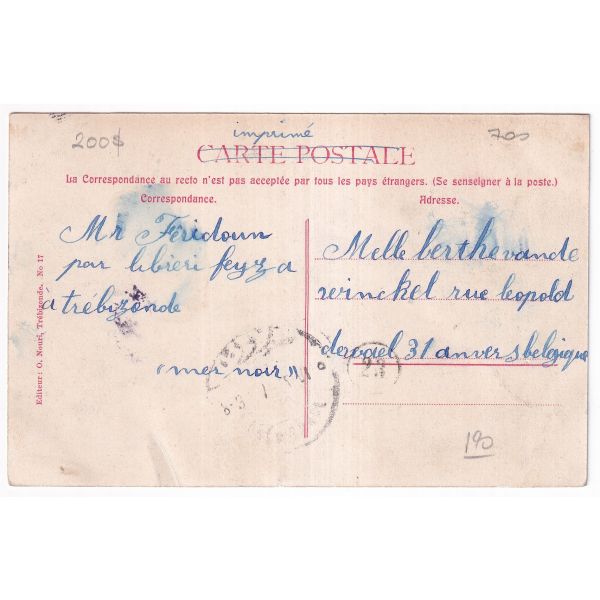 200$
imprimé
700
CARTE POSTALE
La Correspondance au recto n'est pas acceptée par tous les pays étrangers. (Se senseigner à la poste.)
Correspondance.
Adresse.
Mr Féridoun
par librèri feyz a
á trébizonde
"mer noir"
Melle berthe vande
winckel rue leopold
dewael 31 anvers belgique
23
190
Editeur: O. Nouri, Trébizonde. No 17